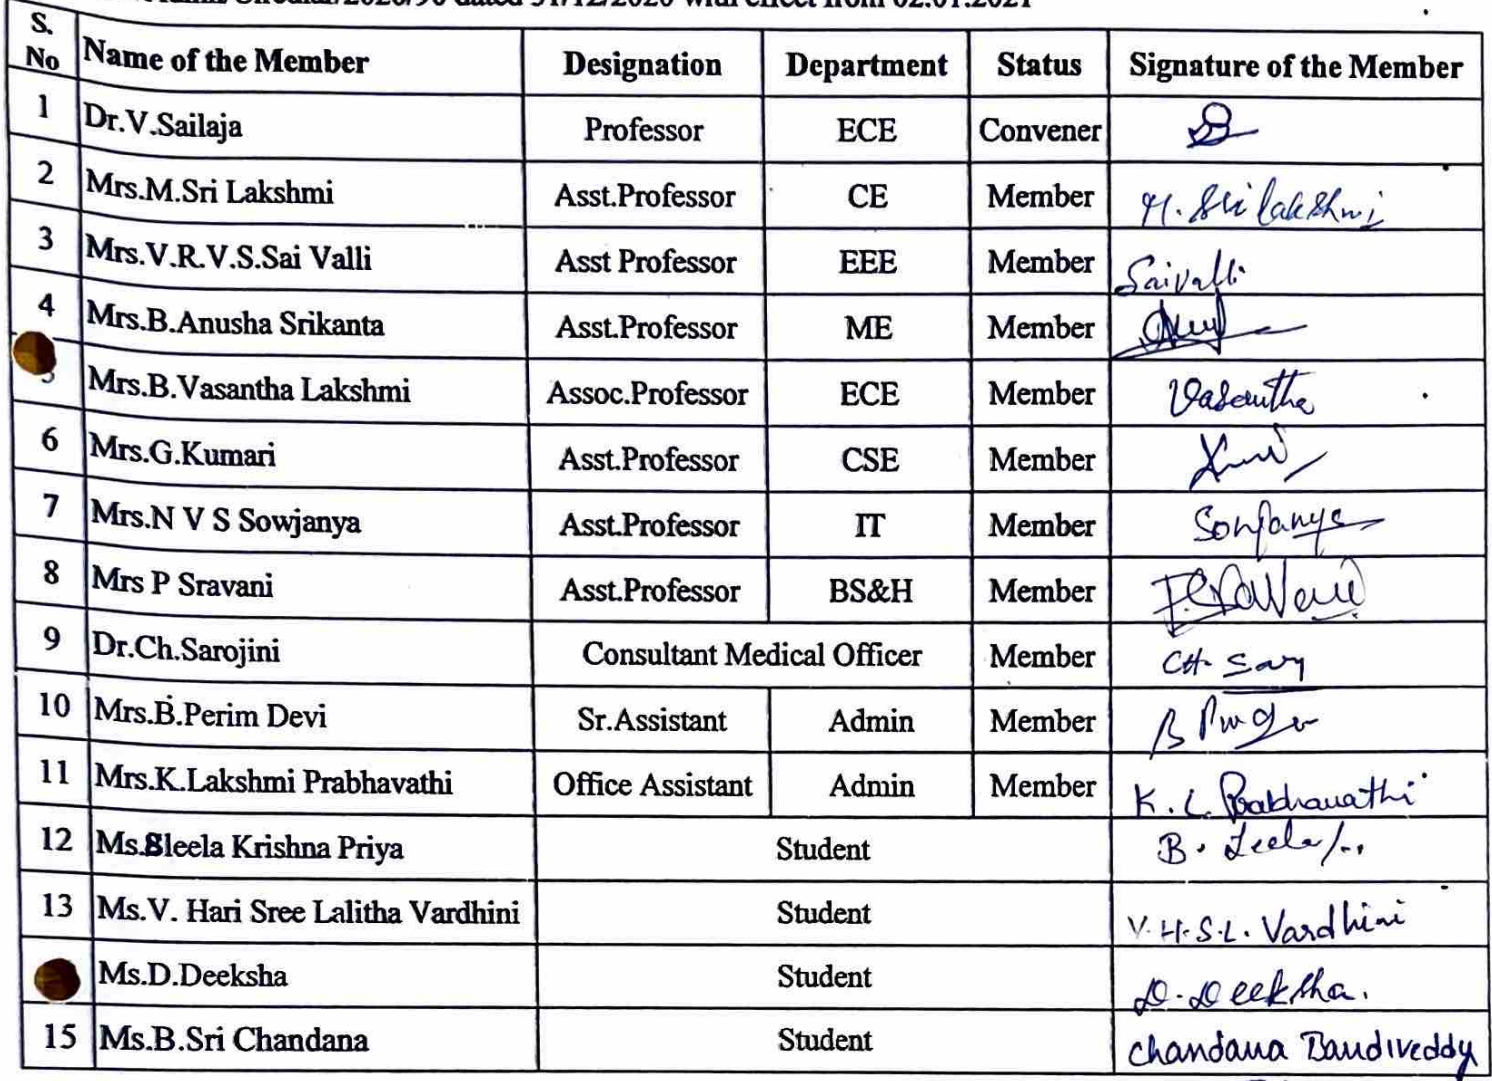 Circular/2020/90 dated 31/12/2020 with effect from 02.01.2021
S. No Name of the Member Designation Department Status Signature of the Member
1 Dr.V.Sailaja Professor ECE Convener
2 Mrs.M.Sri Lakshmi Asst.Professor CE Member M. Sri lakshmi
3 Mrs.V.R.V.S.Sai Valli Asst Professor EEE Member Saivalli
4 Mrs.B.Anusha Srikanta Asst.Professor ME Member
Mrs.B.Vasantha Lakshmi Assoc.Professor ECE Member Vasantha
6 Mrs.G.Kumari Asst.Professor CSE Member
7 Mrs.N V S Sowjanya Asst.Professor IT Member Sowjanya
8 Mrs P Sravani Asst.Professor BS&H Member P.Sravani
9 Dr.Ch.Sarojini Consultant Medical Officer Member CH.
10 Mrs.B.Perim Devi Sr.Assistant Admin Member B
11 Mrs.K.Lakshmi Prabhavathi Office Assistant Admin Member K. L Prabhavathi
12 Ms.Bleela Krishna Priya Student B. Leela
13 Ms.V. Hari Sree Lalitha Vardhini Student V.H.S.L. Vardhini
Ms.D.Deeksha Student D.Deeksha.
15 Ms.B.Sri Chandana Student Chandana Bandireddy